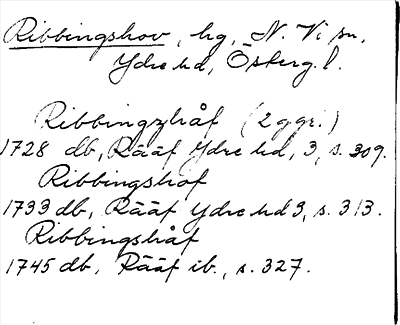 Ribbingshov, hg, N. Vi sn,
Ydre hd, Österg. l.
Ribbingzhåf (2 ggr.)
1728 db, Rääf Ydre hd, 3, s. 309.
Ribbingshof
1733 db, Rääf Ydre hd 3, s. 313.
Ribbingshåf
1745 db, Rääf ib., s. 327.